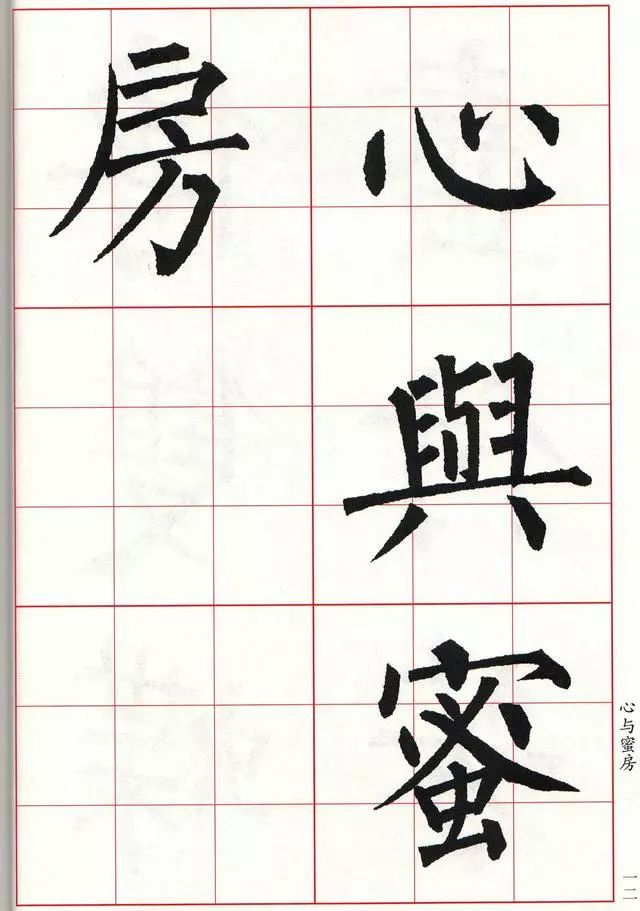 心與蜜
房
心与蜜房
一二